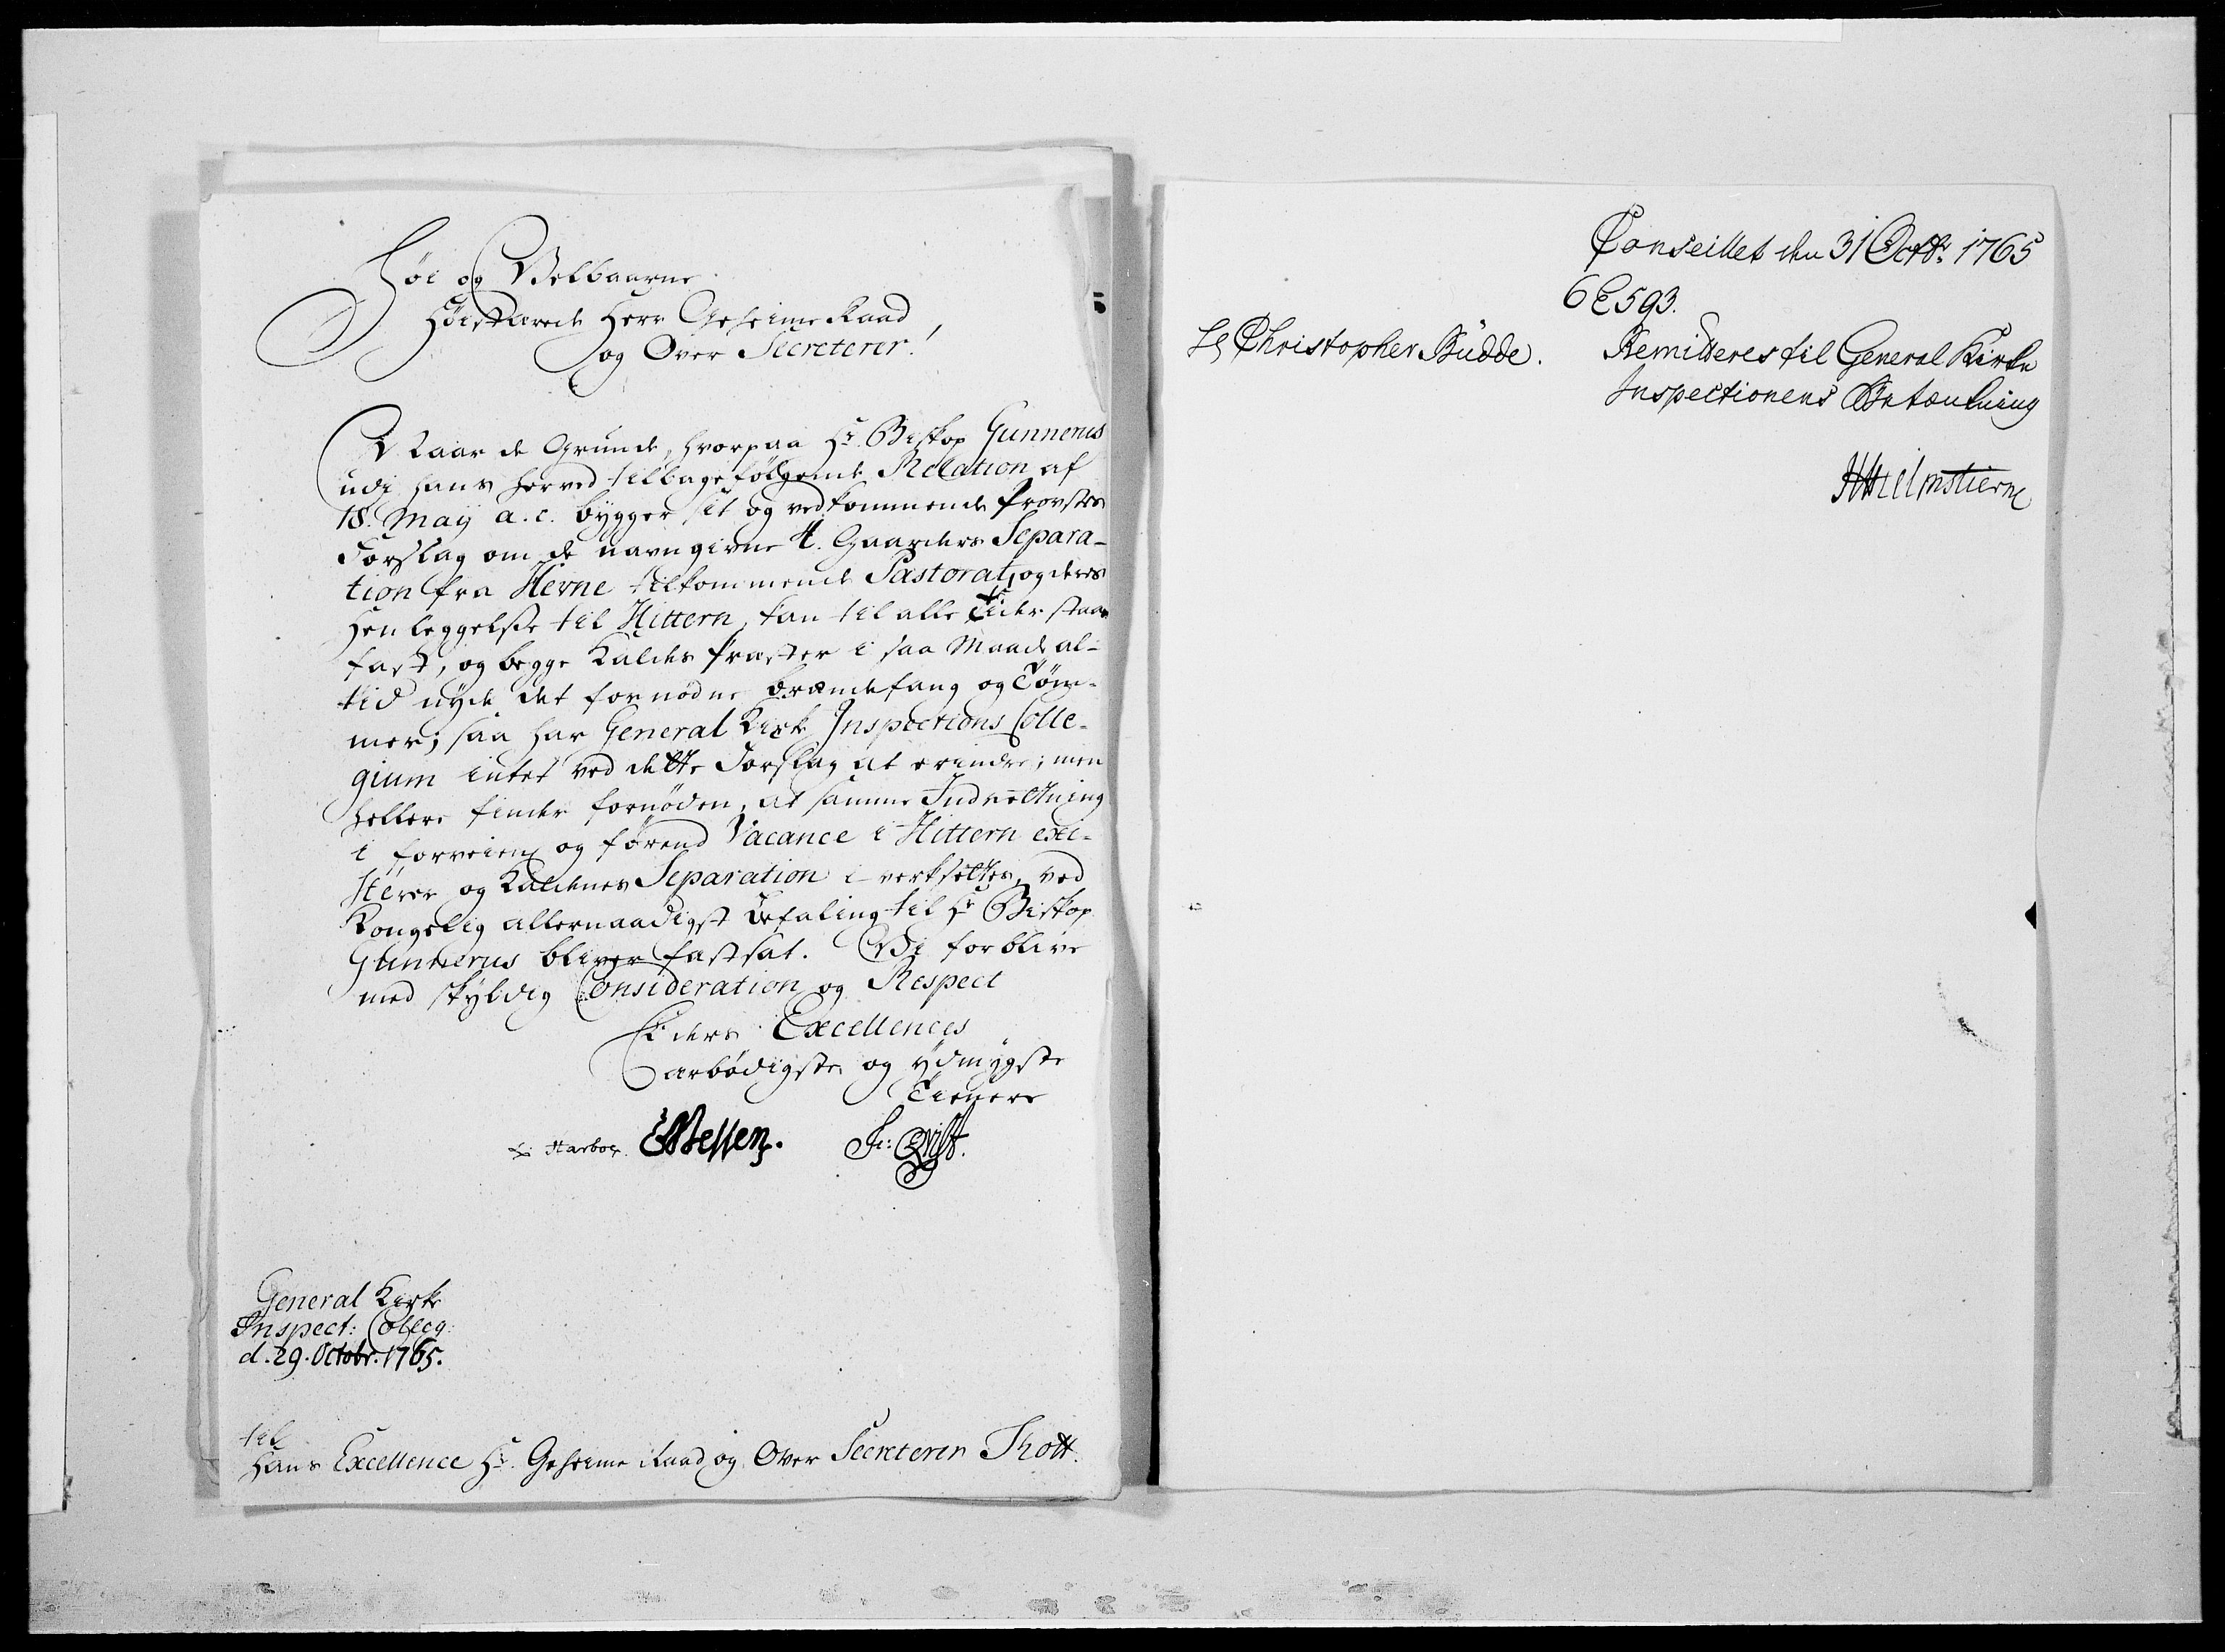 Høi og Velbaarne
Høistærede Herr Geheime Raad
og Over Secreterer!
Naar de Grunde, hvorpaa Hr. Biskop Gunnerus
udj hans herved tilbagefølgende Relation af
18. Maij a. c. bygger sit og vedkommende Provstes
Forslag om de navngivne 4. Gaarders Separa-
tion fra Hevne tilkommende Pastorat, og deres
Henleggelse til Hittern, kan til alle Tider staae
fast, og begge Kaldes Præster i saa Maade al-
tid nyde det fornødne Brændefang og Tøm-
mer; saa har General Kirke Inspections Colle-
gium intet ved dette Forslag at erindre; men
hellere finder fornøden, at samme Indretning
i forveien og førend Vacance i Hittern exi-
sterer og Kaldenes Separation i verksettes, ved
Kongelig allernaadigst Befaling til Hr. Biskop
Gunnerus bliver fastsat. Vi forblive
med skyldig Consideration og Respect
Eders Excellences
ærbødigste og ydmygste
Tienere
Harboe. Hr: Qvist.
General Kirke
Inspect: Colleg:
d. 29. Octobr. 1765.
til
Hans Excellence Hr. Geheime Raad og Over Secreterer Thott.
Conseillet den 31 Octbr. 1765
6 E 593.
Hr Christopher Büdde. Remitteres til General Kirke
Inspectionens Betænkning
HHielmstierne